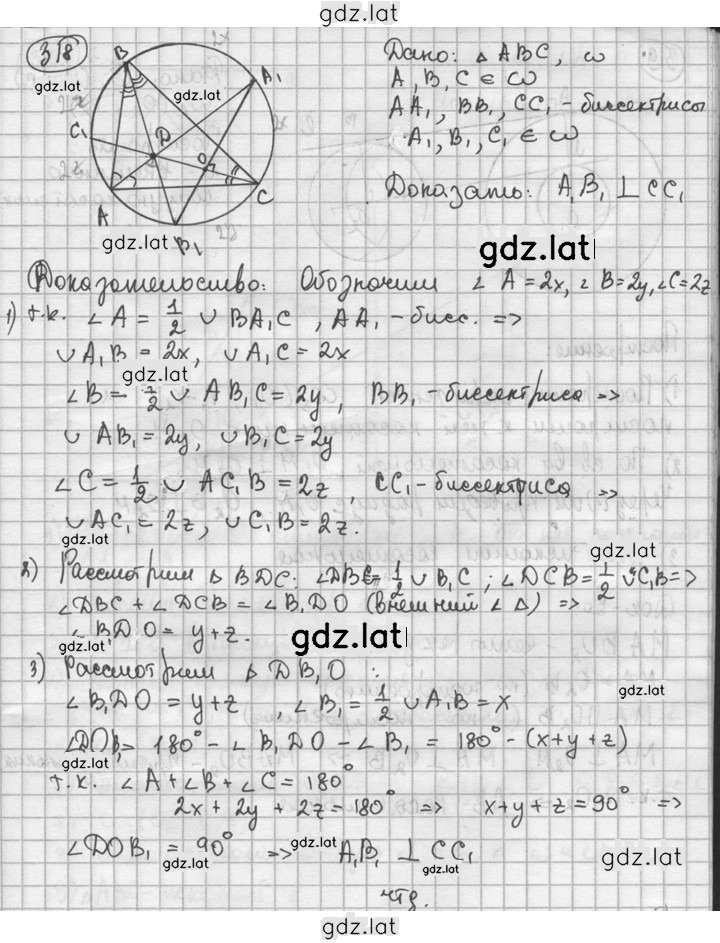 gdz.lat
318
gdz.lat
B
A₁
gdz.lat
C₁
D
O
A
C
B₁
gdz.lat
Дано: △ ABC, ω
A, B, C ∈ ω
AA₁, BB₁, CC₁ - биссектрисы
A₁, B₁, C₁ ∈ ω
Доказать: A₁B₁ ⊥ CC₁
gdz.lat
Доказательство: Обозначим ∠A = 2x, ∠B = 2y, ∠C = 2z
1) т.к. ∠A = 1/2 ∪ BA₁C, AA₁ - бисс. =>
∪A₁B = 2x, ∪A₁C = 2x
gdz.lat
∠B = 1/2 ∪ AB₁C = 2y, BB₁ - биссектриса =>
∪ AB₁ = 2y, ∪B₁C = 2y
∠C = 1/2 ∪ AC₁B = 2z, CC₁ - биссектриса =>
∪AC₁ = 2z, ∪C₁B = 2z.
gdz.lat
gdz.lat
2) Рассмотрим △ BDC: ∠DBC = 1/2 ∪ B₁C; ∠DCB = 1/2 ∪C₁B =>
∠DBC + ∠DCB = ∠B₁DO (внешний ∠ △) =>
∠B₁DO = y+z.
gdz.lat
gdz.lat
3) Рассмотрим △ DB₁O:
gdz.lat
∠B₁DO = y+z, ∠B₁ = 1/2 ∪A₁B = x
∠DOB₁ = 180° - ∠B₁DO - ∠B₁ = 180° - (x+y+z)
т.к. ∠A + ∠B + ∠C = 180°
2x + 2y + 2z = 180° => x+y+z = 90° =>
∠DOB₁ = 90° => A₁B₁ ⊥ CC₁
gdz.lat
gdz.lat
gdz.lat
чтд.
gdz.lat